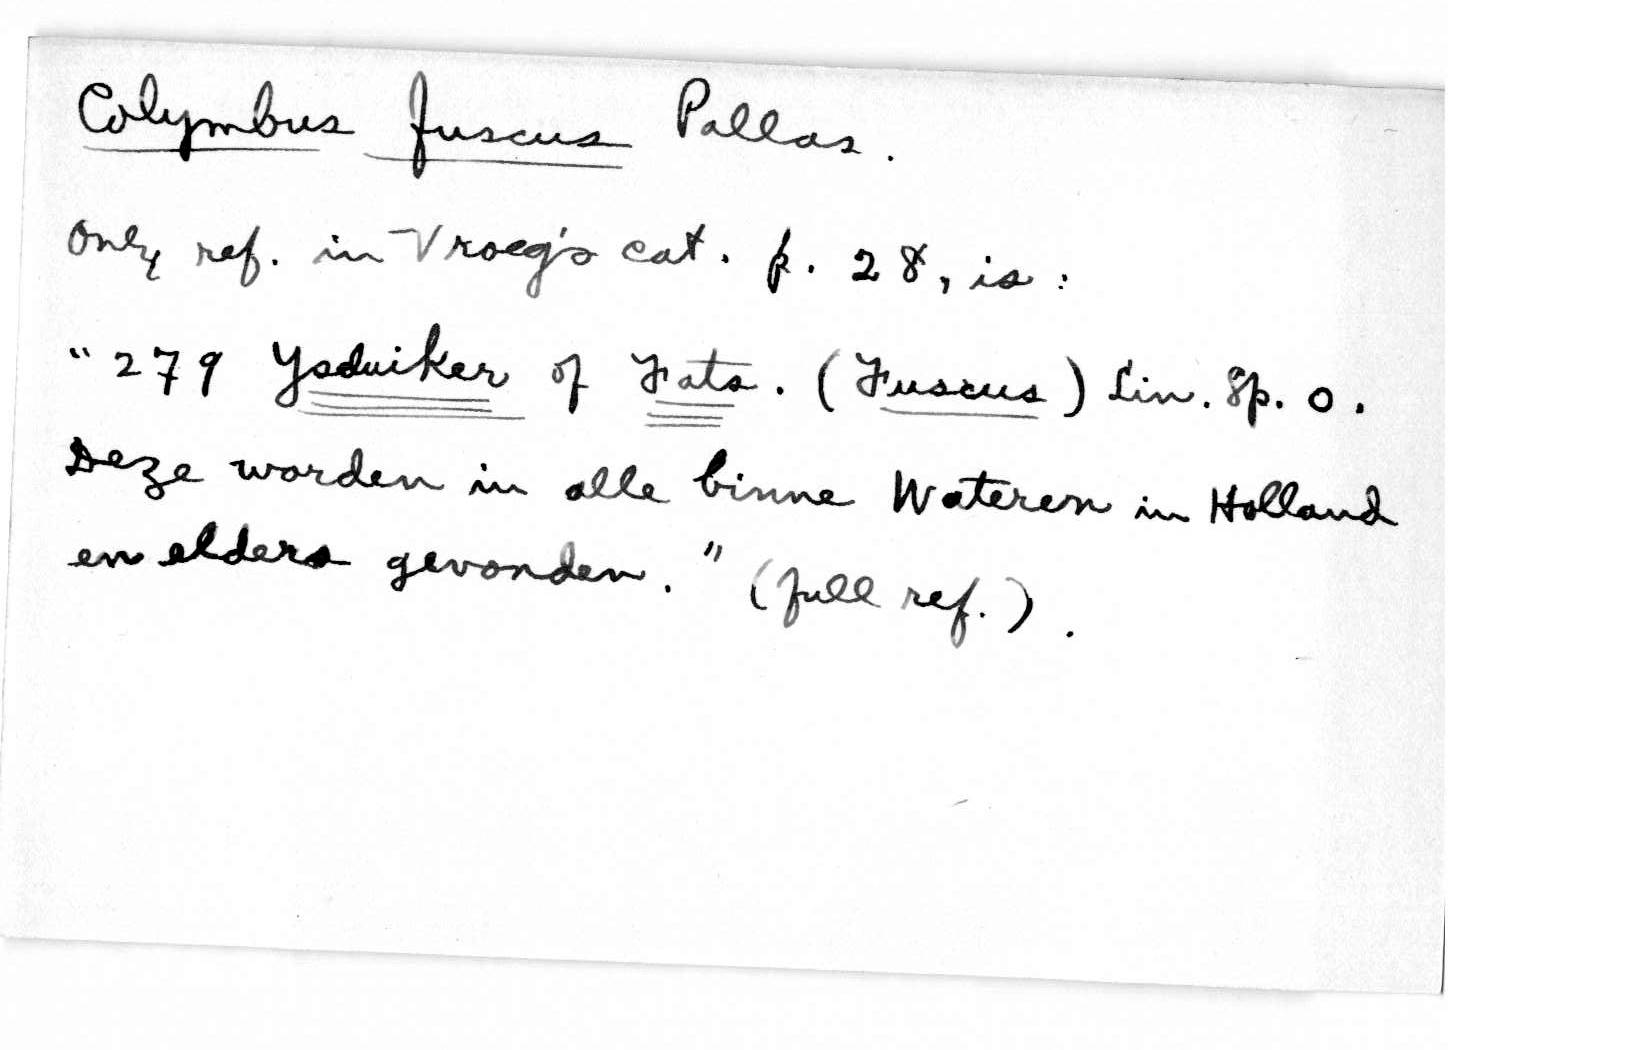 Colymbus fuscus Pallas.
Only ref. in Vroeg's cat. p. 28, is:
"279 Ysduiker of Fats. (Fuscus) Lin. Sp. 0.
Deze worden in alle binne Wateren in Holland
en elders gevonden." (full ref.).